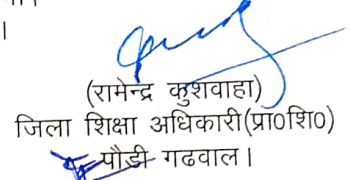 ।
(रामेन्द्र कुशवाहा)
जिला शिक्षा अधिकारी(प्रा0शि0)
पौडी गढवाल।